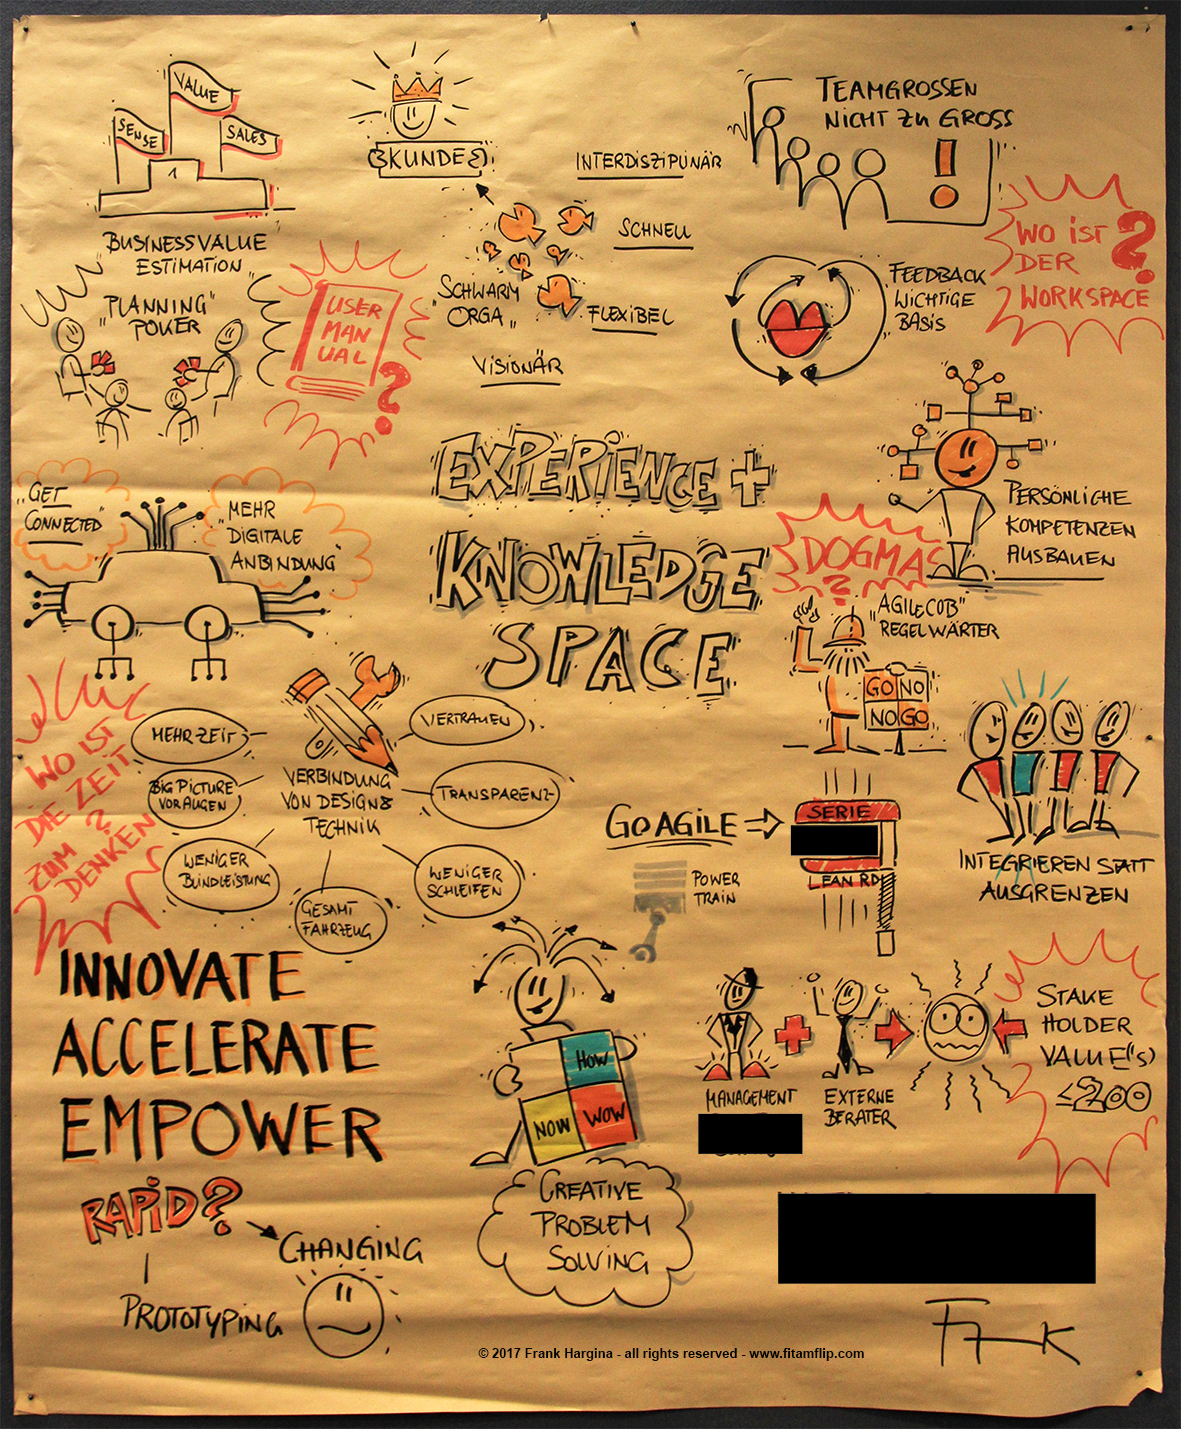 VALUE
SENSE
SALES
1
BUSINESSVALUE
ESTIMATION
KUNDE
INTERDISZIPLINÄR
SCHNELL
„SCHWARM
ORGA„
FLEXIBEL
VISIONÄR
TEAMGROSSEN
NICHT ZU GROSS
!
WO IST
DER
WORKSPACE
?
FEEDBACK
WICHTIGE
BASIS
„PLANNING"
POKER
USER
MAN
UAL
?
EXPERIENCE +
KNOWLEDGE
SPACE
PERSÖNLICHE
KOMPETENZEN
AUSBAUEN
„GET
CONNECTED"
„MEHR
DIGITALE
ANBINDUNG"
DOGMAS
?
„AGILE COB"
REGELWÄRTER
GO NO
NO GO
WO IST
DIE ZEIT
?
ZUM
DENKEN
MEHR ZEIT
BIG PICTURE
VOR AUGEN
WENIGER
BLINDLEISTUNG
VERBINDUNG
VON DESIGN &
TECHNIK
VERTRAUEN
TRANSPARENZ
WENIGER
SCHLEIFEN
GESAMT
FAHRZEUG
GO AGILE
SERIE
LEAN RD
POWER
TRAIN
INTEGRIEREN STATT
AUSGRENZEN
INNOVATE
ACCELERATE
EMPOWER
HOW
NOW WOW
CREATIVE
PROBLEM
SOLVING
MANAGEMENT
EXTERNE
BERATER
STAKE
HOLDER
VALUE('S)
≤200
RAPID?
CHANGING
PROTOTYPING
FRANK
© 2017 Frank Hargina - all rights reserved - www.fitamflip.com